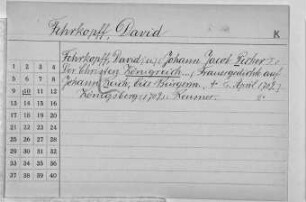 Fehrkopff, David
K
Fehrkopff, David u. Johann Jacob
Der Christen Königreich... Trauergedicht auf
Johann des Bürgerm. + 5. April 1702
Königsberg: 1702: Reusner.
1 2 3 4
5 6 7 8
9 10 11 12
13 14 15 16
17 18 19 20
21 22 23 24
25 26 27 28
29 30 31 32
33 34 35 36
37 38 39 40